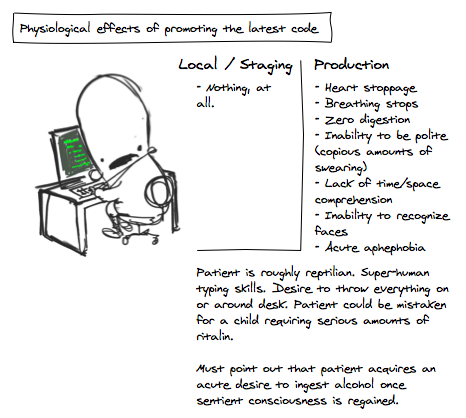 Physiological effects of promoting the latest code
Local / Staging
- Nothing, at
all.
Production
- Heart stoppage
- Breathing stops
- Zero digestion
- Inability to be polite
(copious amounts of
swearing)
- Lack of time/space
comprehension
- Inability to recognize
faces
- Acute aphephobia
Patient is roughly reptilian. Super-human
typing skills. Desire to throw everything on
or around desk. Patient could be mistaken
for a child requiring serious amounts of
ritalin.
Must point out that patient acquires an
acute desire to ingest alcohol once
sentient consciousness is regained.